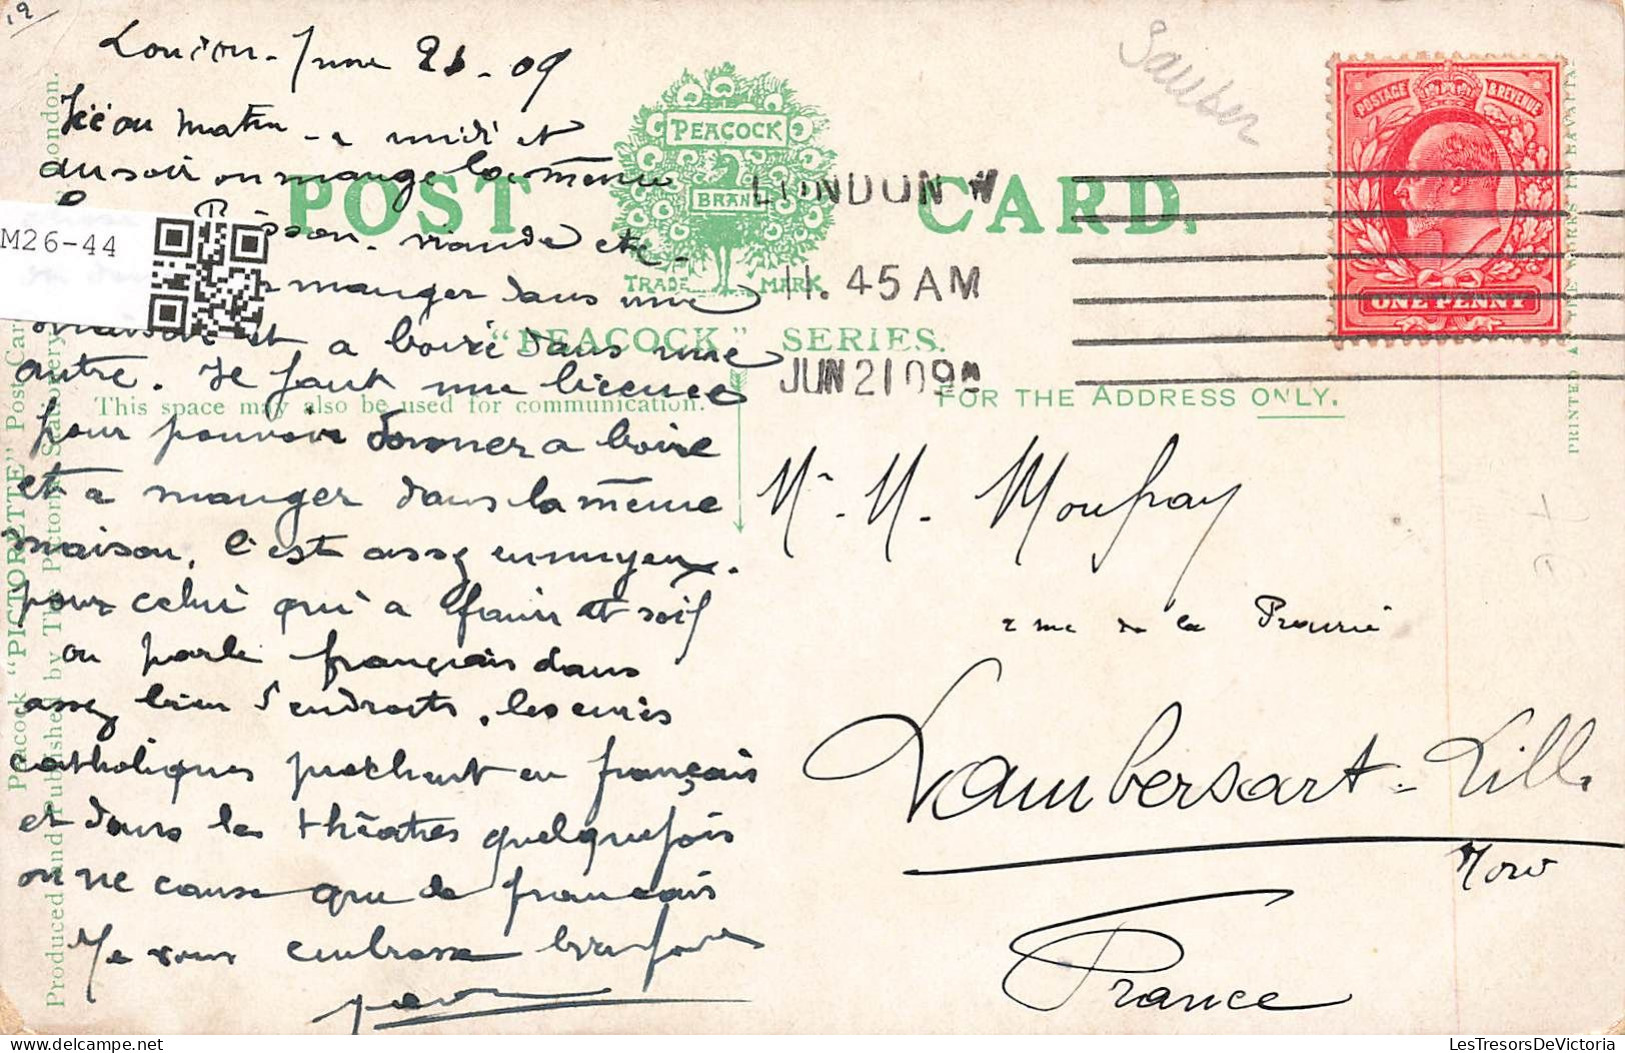 19
London - June 21 - 09
Ici au matin - a midi et
au soir on mange la même
Poisson - viande etc -
manger dans une
maison et a boire dans une
autre. Il faut une licence
pour pouvoir donner a boire
et a manger dans la même
maison, c'est assez ennuyeux.
pour celui qui a faim et soif
on parle français dans
assez bien d'endroits, les curés
catholiques prechent en français
et dans les théatres quelquefois
on ne cause que de français
Je vous embrasse bien fort
M26-44
POST CARD.
PEACOCK
BRAND
TRADE MARK
"PEACOCK" SERIES.
This space may also be used for communication.
FOR THE ADDRESS ONLY.
Peacock "PICTORETTE" Post Card
Produced and Published by The Pictorial Stationery London.
PRINTED
LONDON W
11.45 AM
JUN 21 09
POSTAGE & REVENUE
ONE PENNY
Mr. M.
rue de la Prairie
Lambersart - Lille
Nord
France
LesTresorsDeVictoria